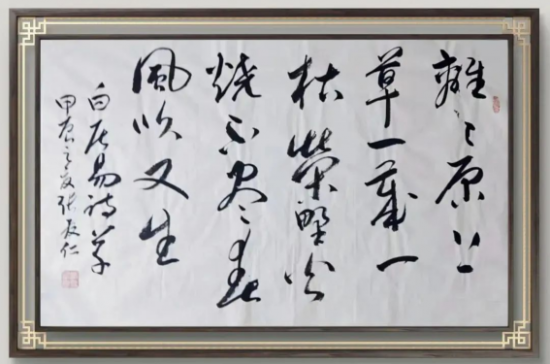 離々原上
草一歲一
枯榮野火
燒不盡春
風吹又生
白居易詩
甲辰之夏張友仁